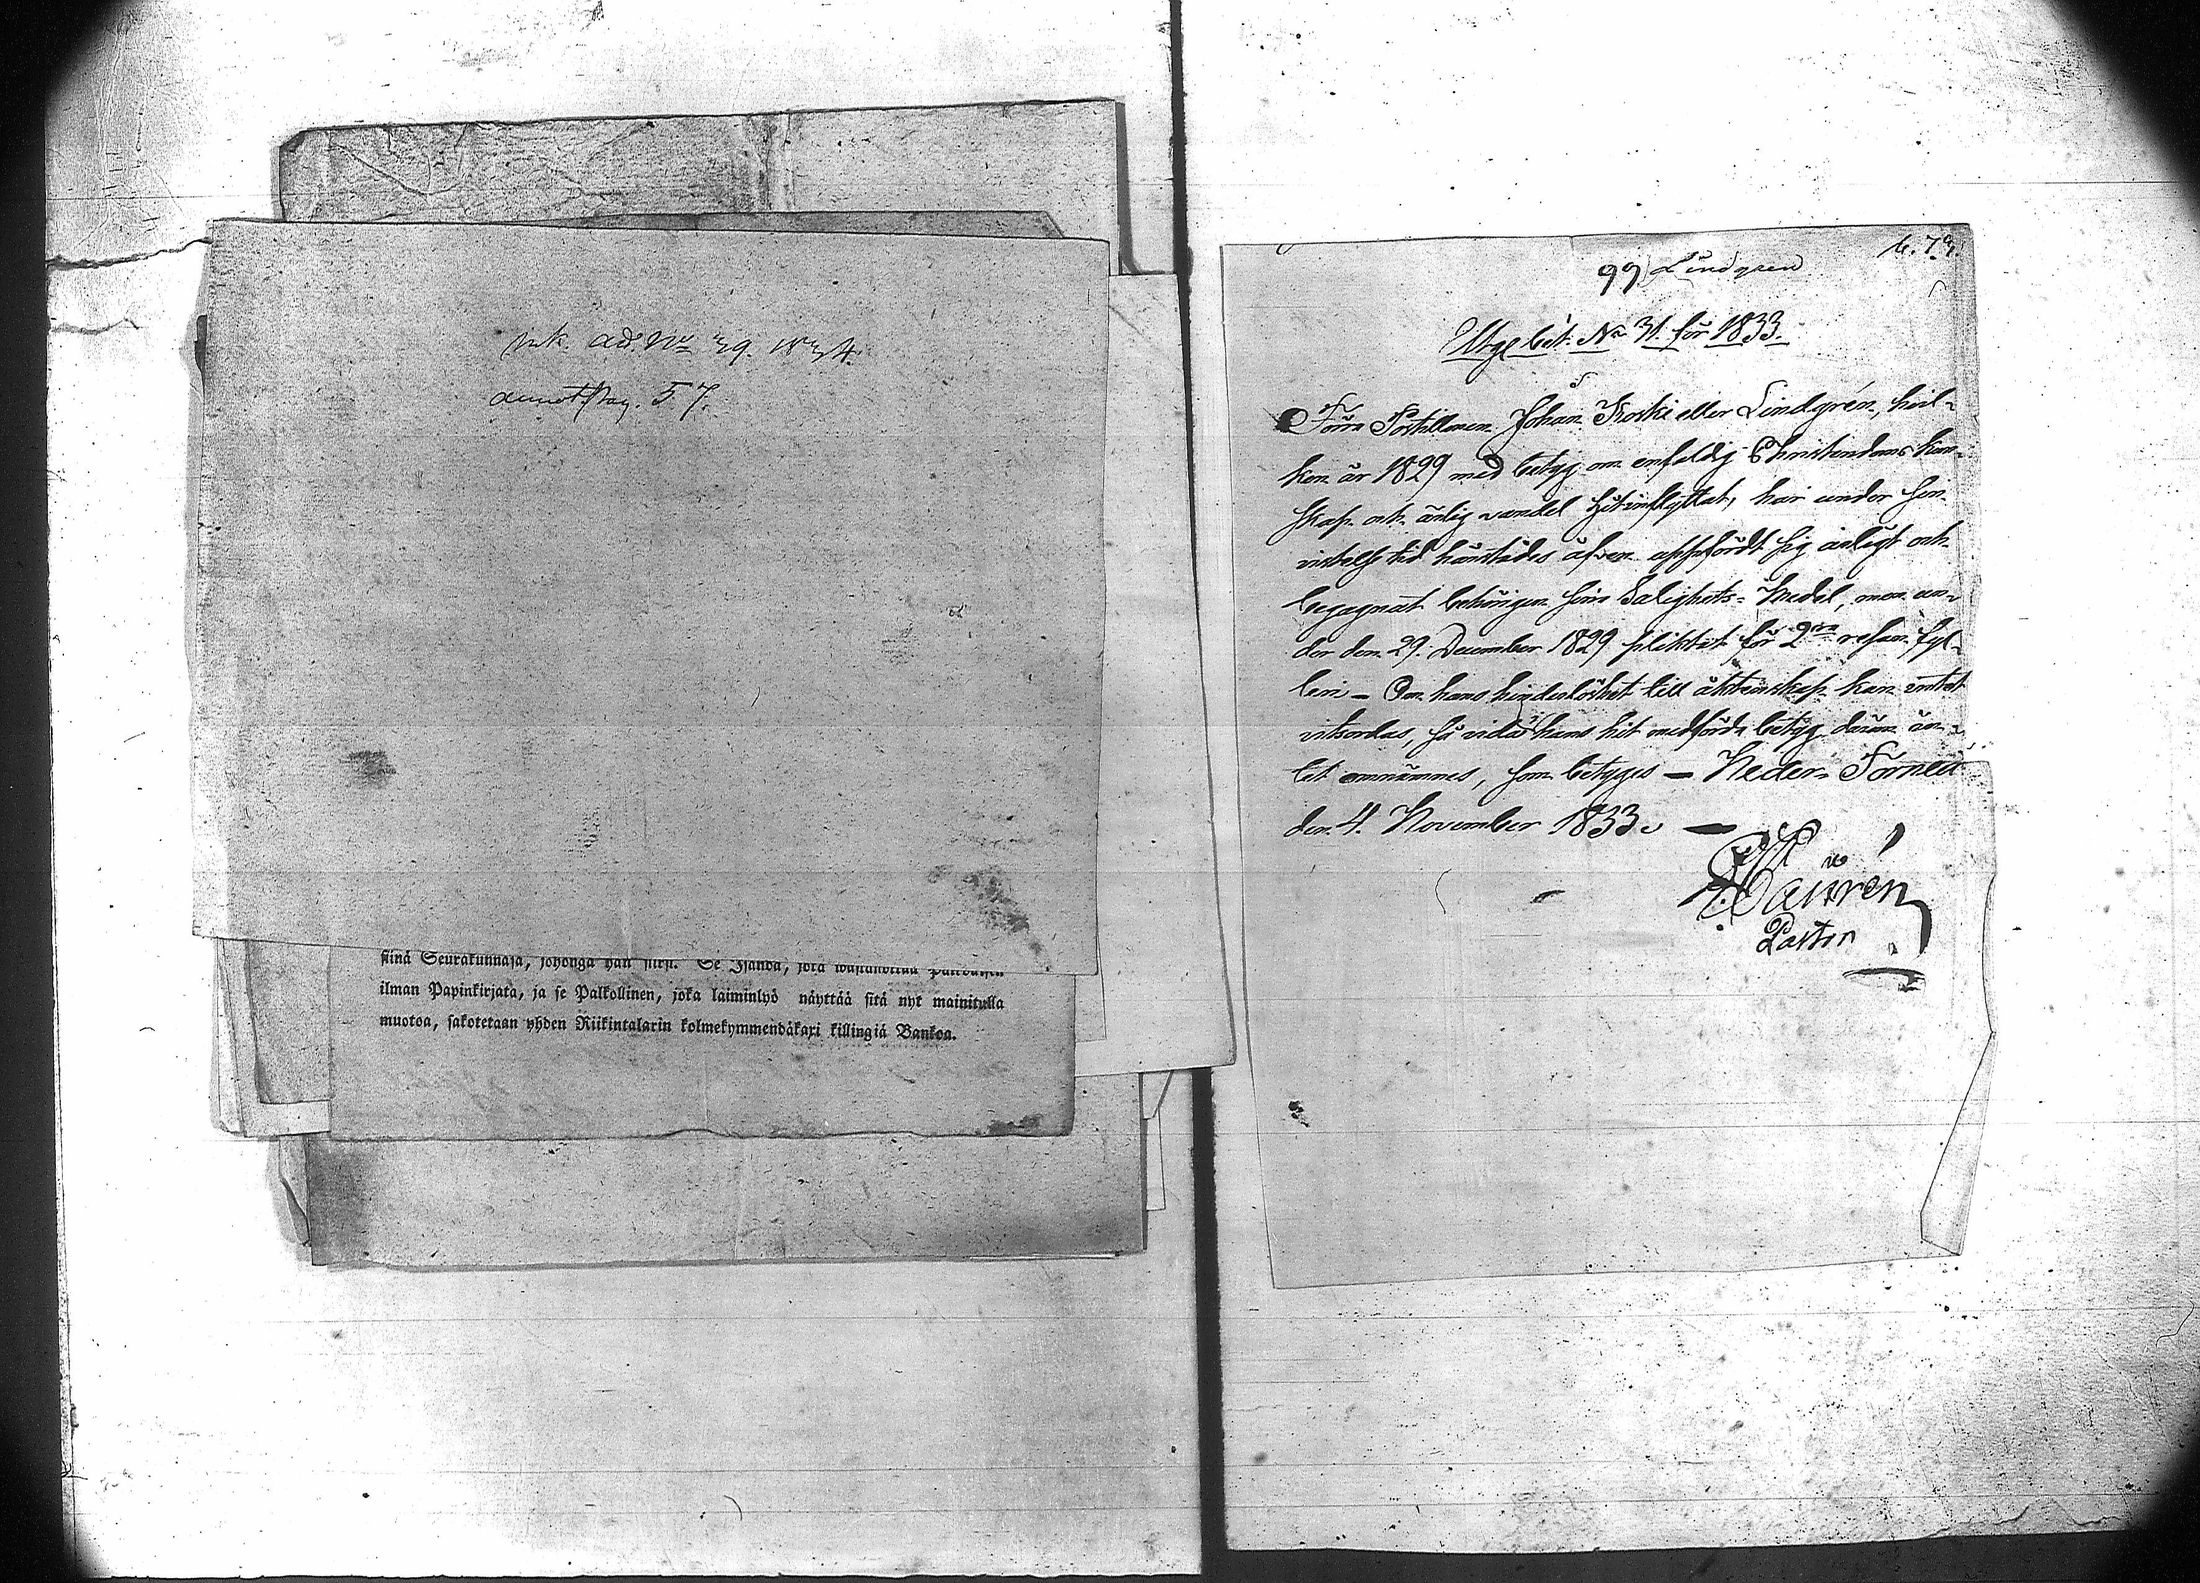 ink. ad. No 39. 1834.
annot. pag. 57.
siinä Seurakunnasa, johonga hän siirsi. Se Isändä, jota wastanottaa Palkolisen
ilman Papinkirjata, ja se Palkollinen, joka laiminlyö näyttää sitä nyt mainitulla
muotoa, sakotetaan yhden Riikintalarin kolmekymmendäkaxi killingiä Bankoa.
99) Lindgren
Utge bet. No 31. för 1833.
Förra Postillonen Johan Koski eller Lindgrén, hvil-
ken år 1829 med betyg om enfaldig Christendoms kun-
skap och ärlig vandel hitinflyttat, har under sin
vistelse tid härstädes äfven uppfördt sig ärligt och
begagnat behörigen sina Salighets-Medel, men un-
der den 29. December 1829 pliktat för 2dra resan fyl-
leri – Om hans hinderlöshet till äktenskap kan intet
vitsordas, så vida i hans hit medförda betyg därom in-
tet omnämnes, som betyges – Neder-Torneå
den 4. November 1833.
Pastor